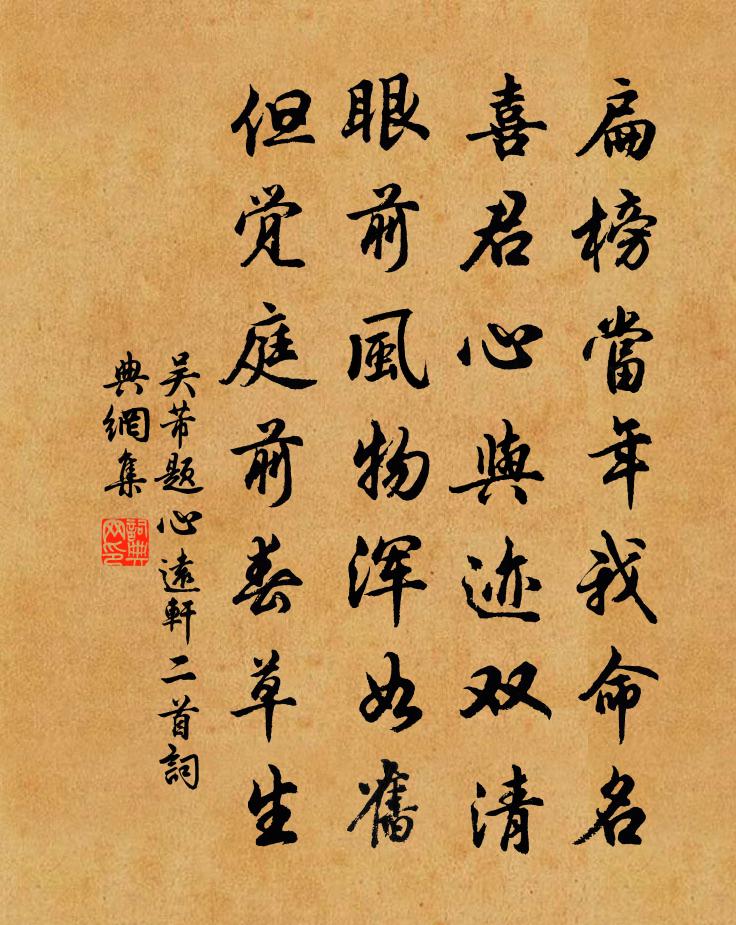 扁榜當年我命名
喜君心與迹双清
眼前風物渾如舊
但覚庭前春草生
吴芾题心遠軒二首詞
典網集
詞典网印